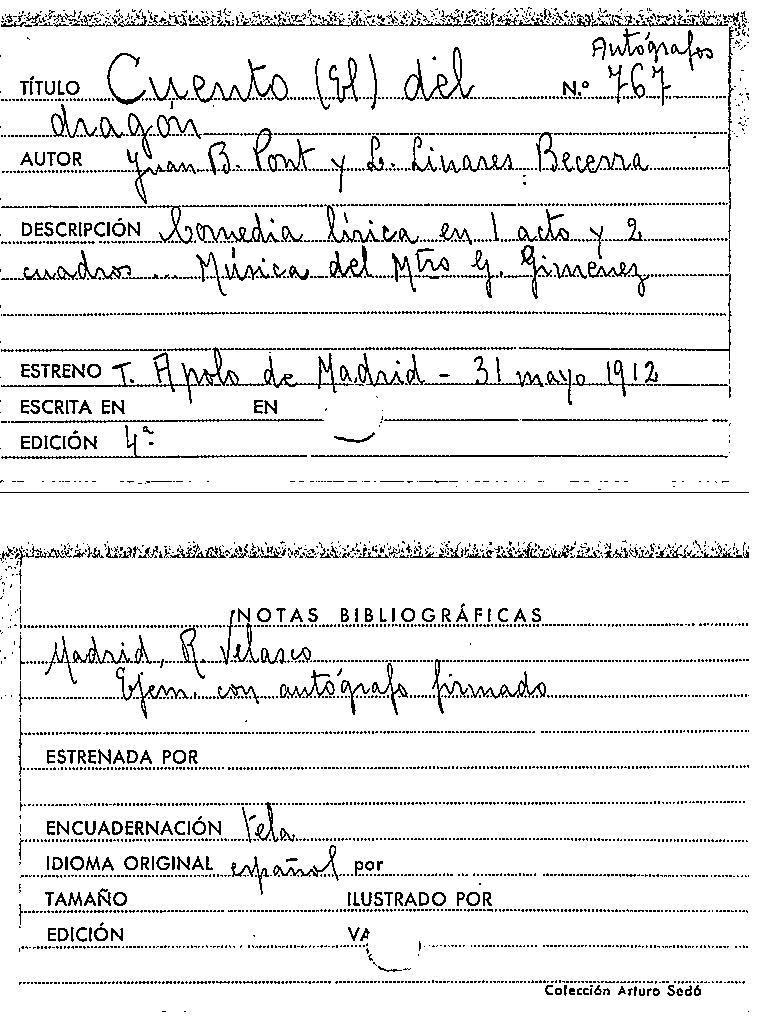 Autógrafos
TÍTULO Cuento (El) del N.º 767
dragón
AUTOR Juan B. Pont y L. Linares Becerra
DESCRIPCIÓN Comedia lírica en 1 acto y 2
cuadros ... Música del Mtro G. Giménez
ESTRENO T. Apolo de Madrid - 31 mayo 1912
ESCRITA EN EN
EDICIÓN 4ª
NOTAS BIBLIOGRÁFICAS
Madrid, R. Velasco
Ejem. con autógrafo firmado
ESTRENADA POR
ENCUADERNACIÓN tela
IDIOMA ORIGINAL español por
TAMAÑO ILUSTRADO POR
EDICIÓN
Colección Arturo Sedó